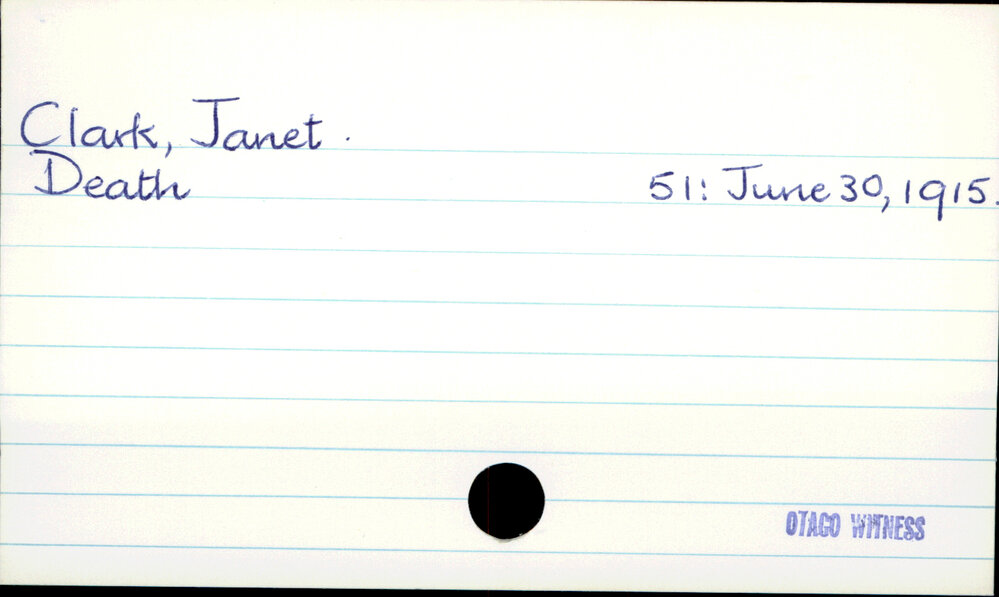 Clark, Janet.
Death 51: June 30, 1915.
OTAGO WITNESS